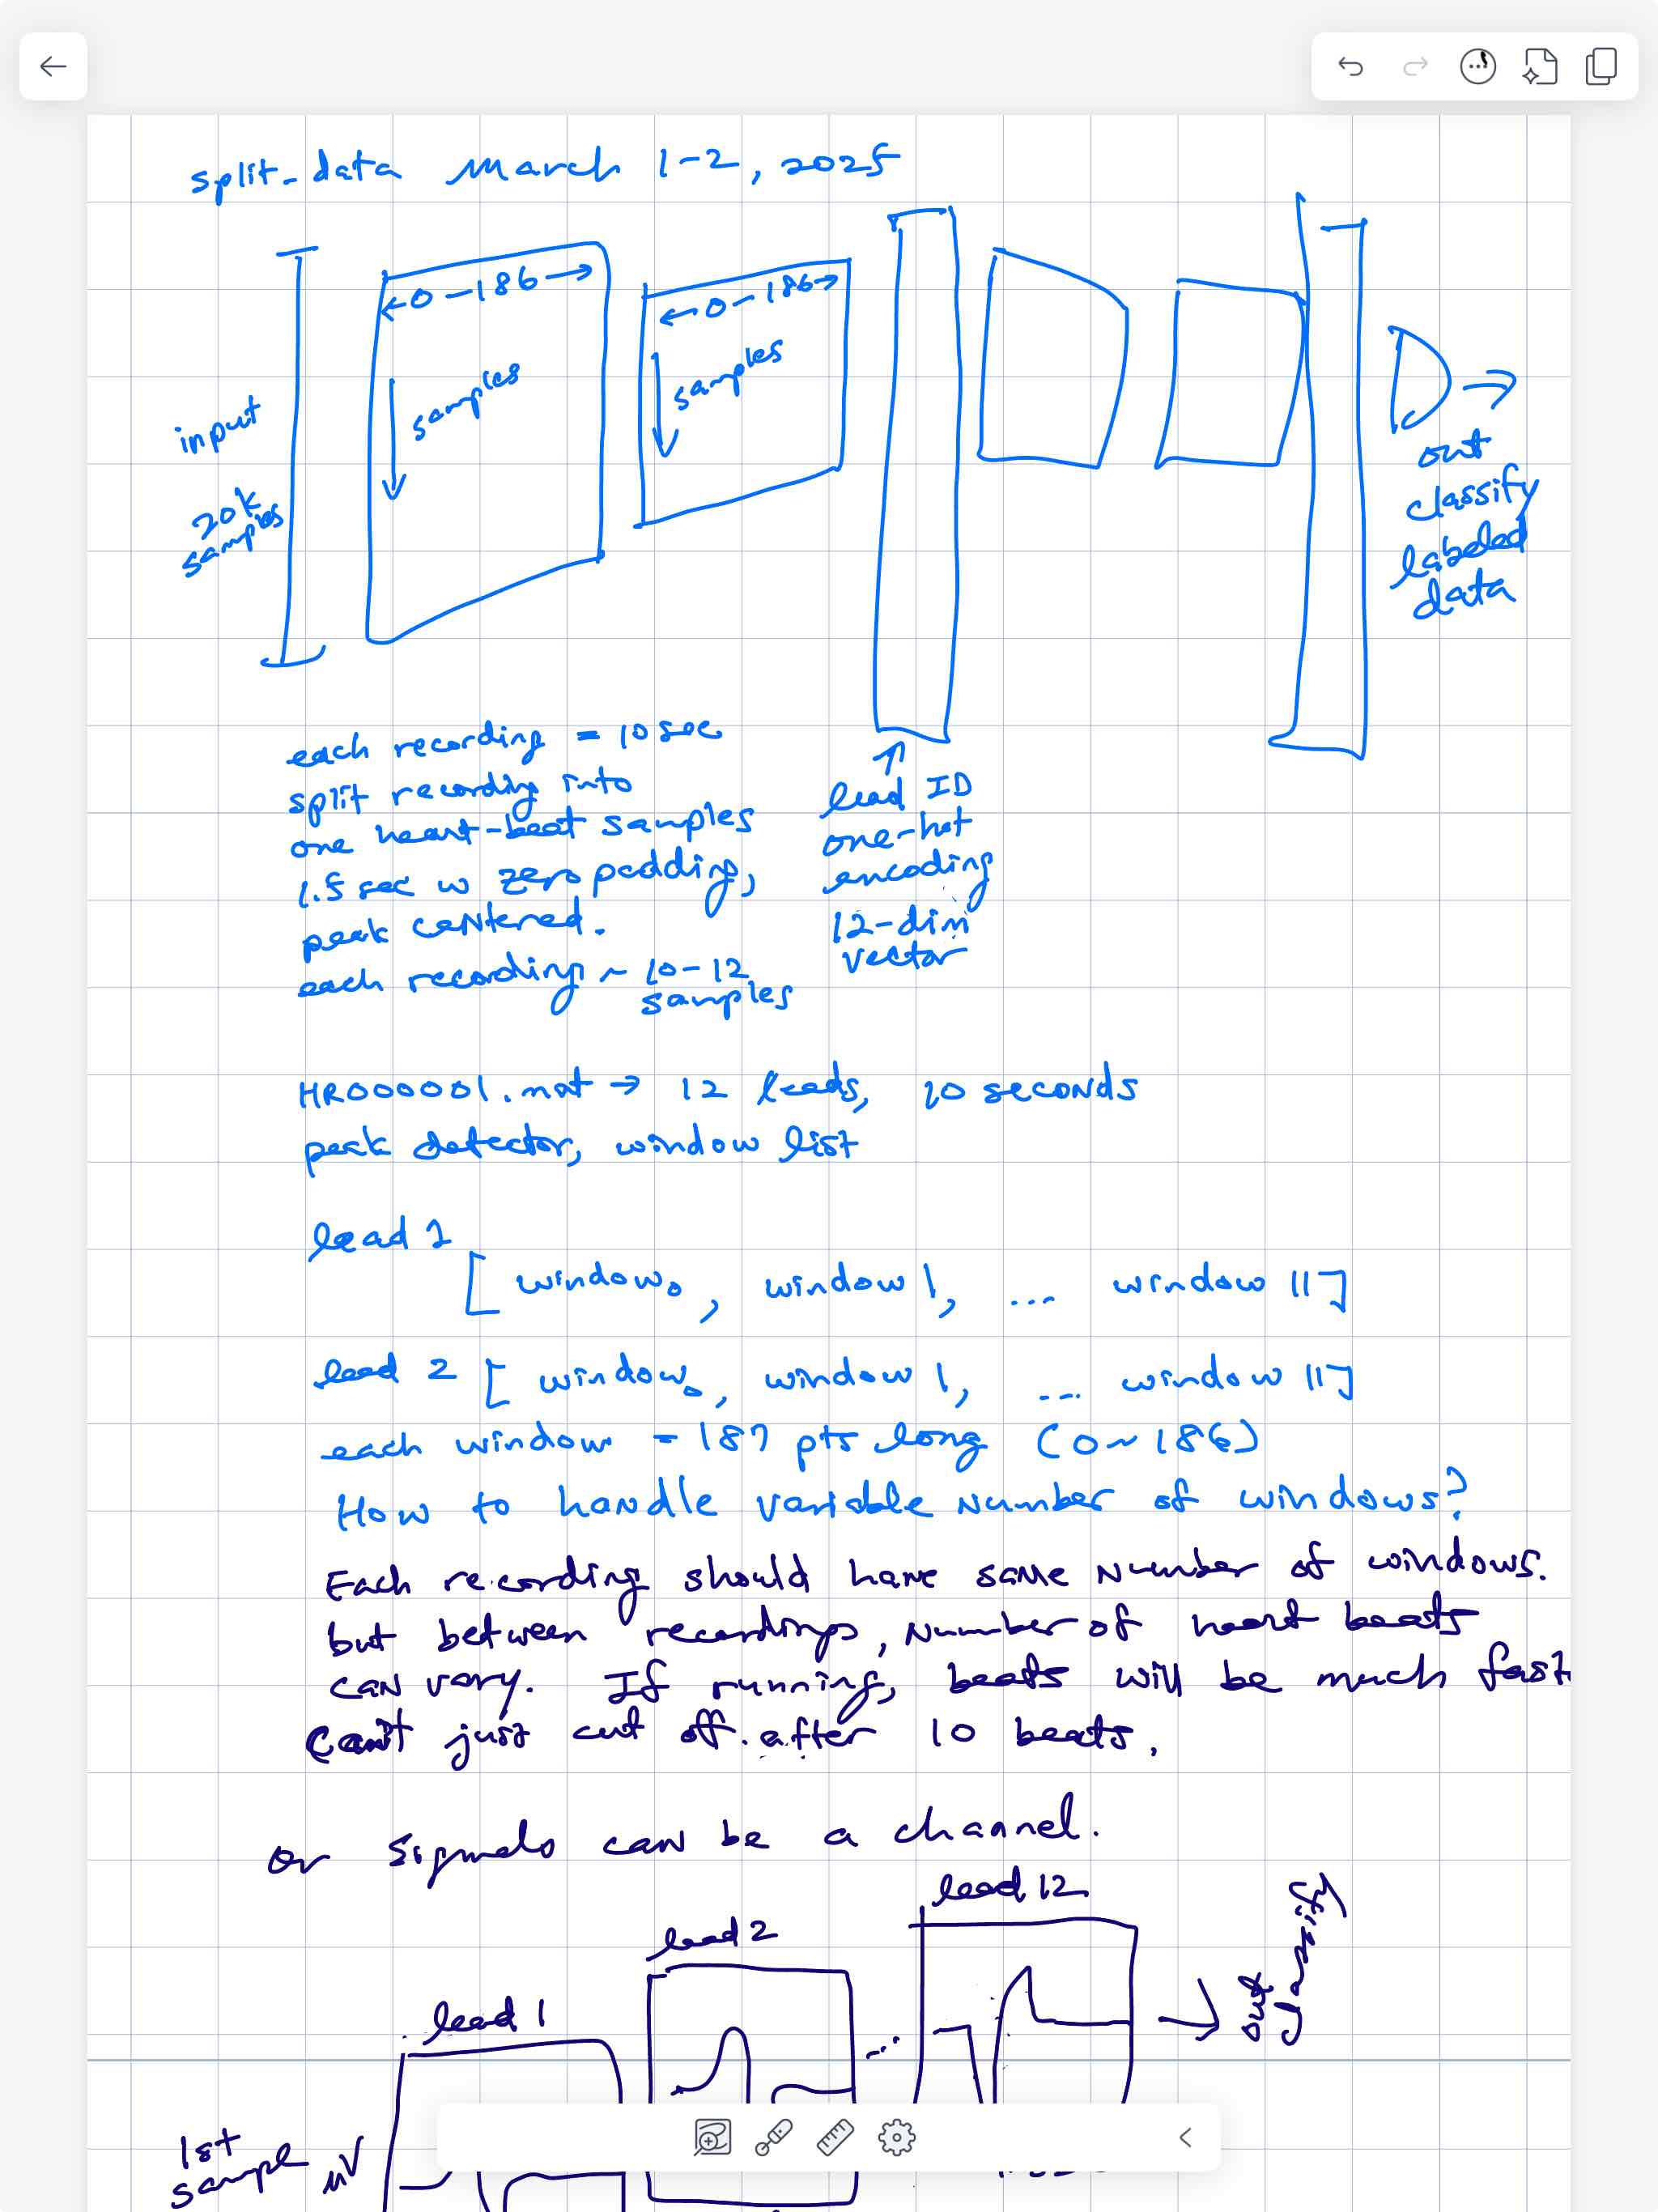 split-data March 1-2, 2025
← 0 - 186 →
← 0 - 186 →
samples
samples
input
20k
samples
out
classify
labeled
data
each recording = 10 sec
split recording into
one heart-beat samples
1.5 sec w zero padding,
peak centered.
each recording ~ 10-12
samples
lead ID
one-hot
encoding
12-dim
vector
HR00001.mat → 12 leads, 10 seconds
peak detector, window list
lead 1
[ window0, window 1, ... window 11]
lead 2 [ window0, window 1, ... window 11]
each window = 187 pts long (0~186)
How to handle variable number of windows?
Each recording should have same number of windows.
but between recordings, number of heart beats
can vary. If running, beats will be much fast
can't just cut off after 10 beats.
or signals can be a channel.
lead 1
lead 2
...
lead 12
out
classify
1st
sample
mV